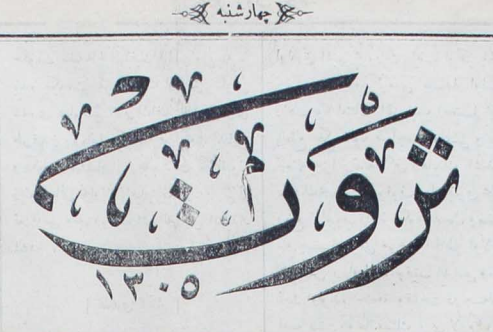 چهارشنبه
ثروت
١٣٠٥